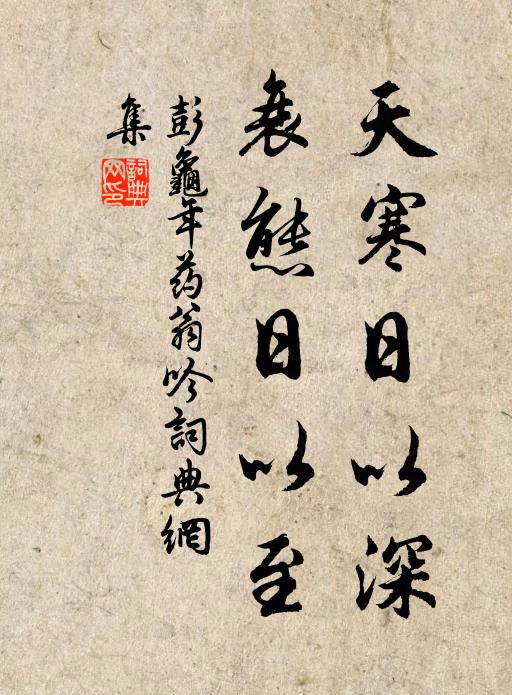 天寒日以深
衰態日以至
彭龜年药翁吟詞典網
集
詞典网印